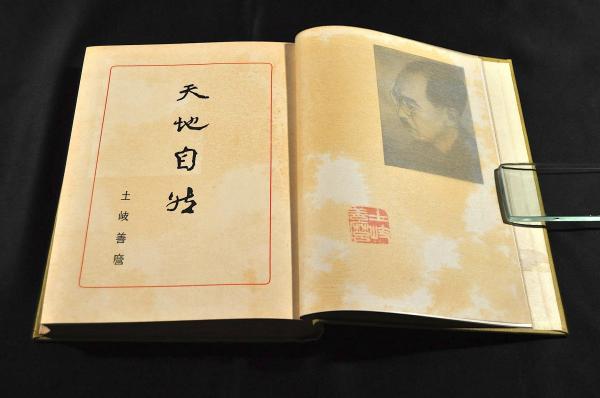 天地自然
土岐善麿
土岐
善麿